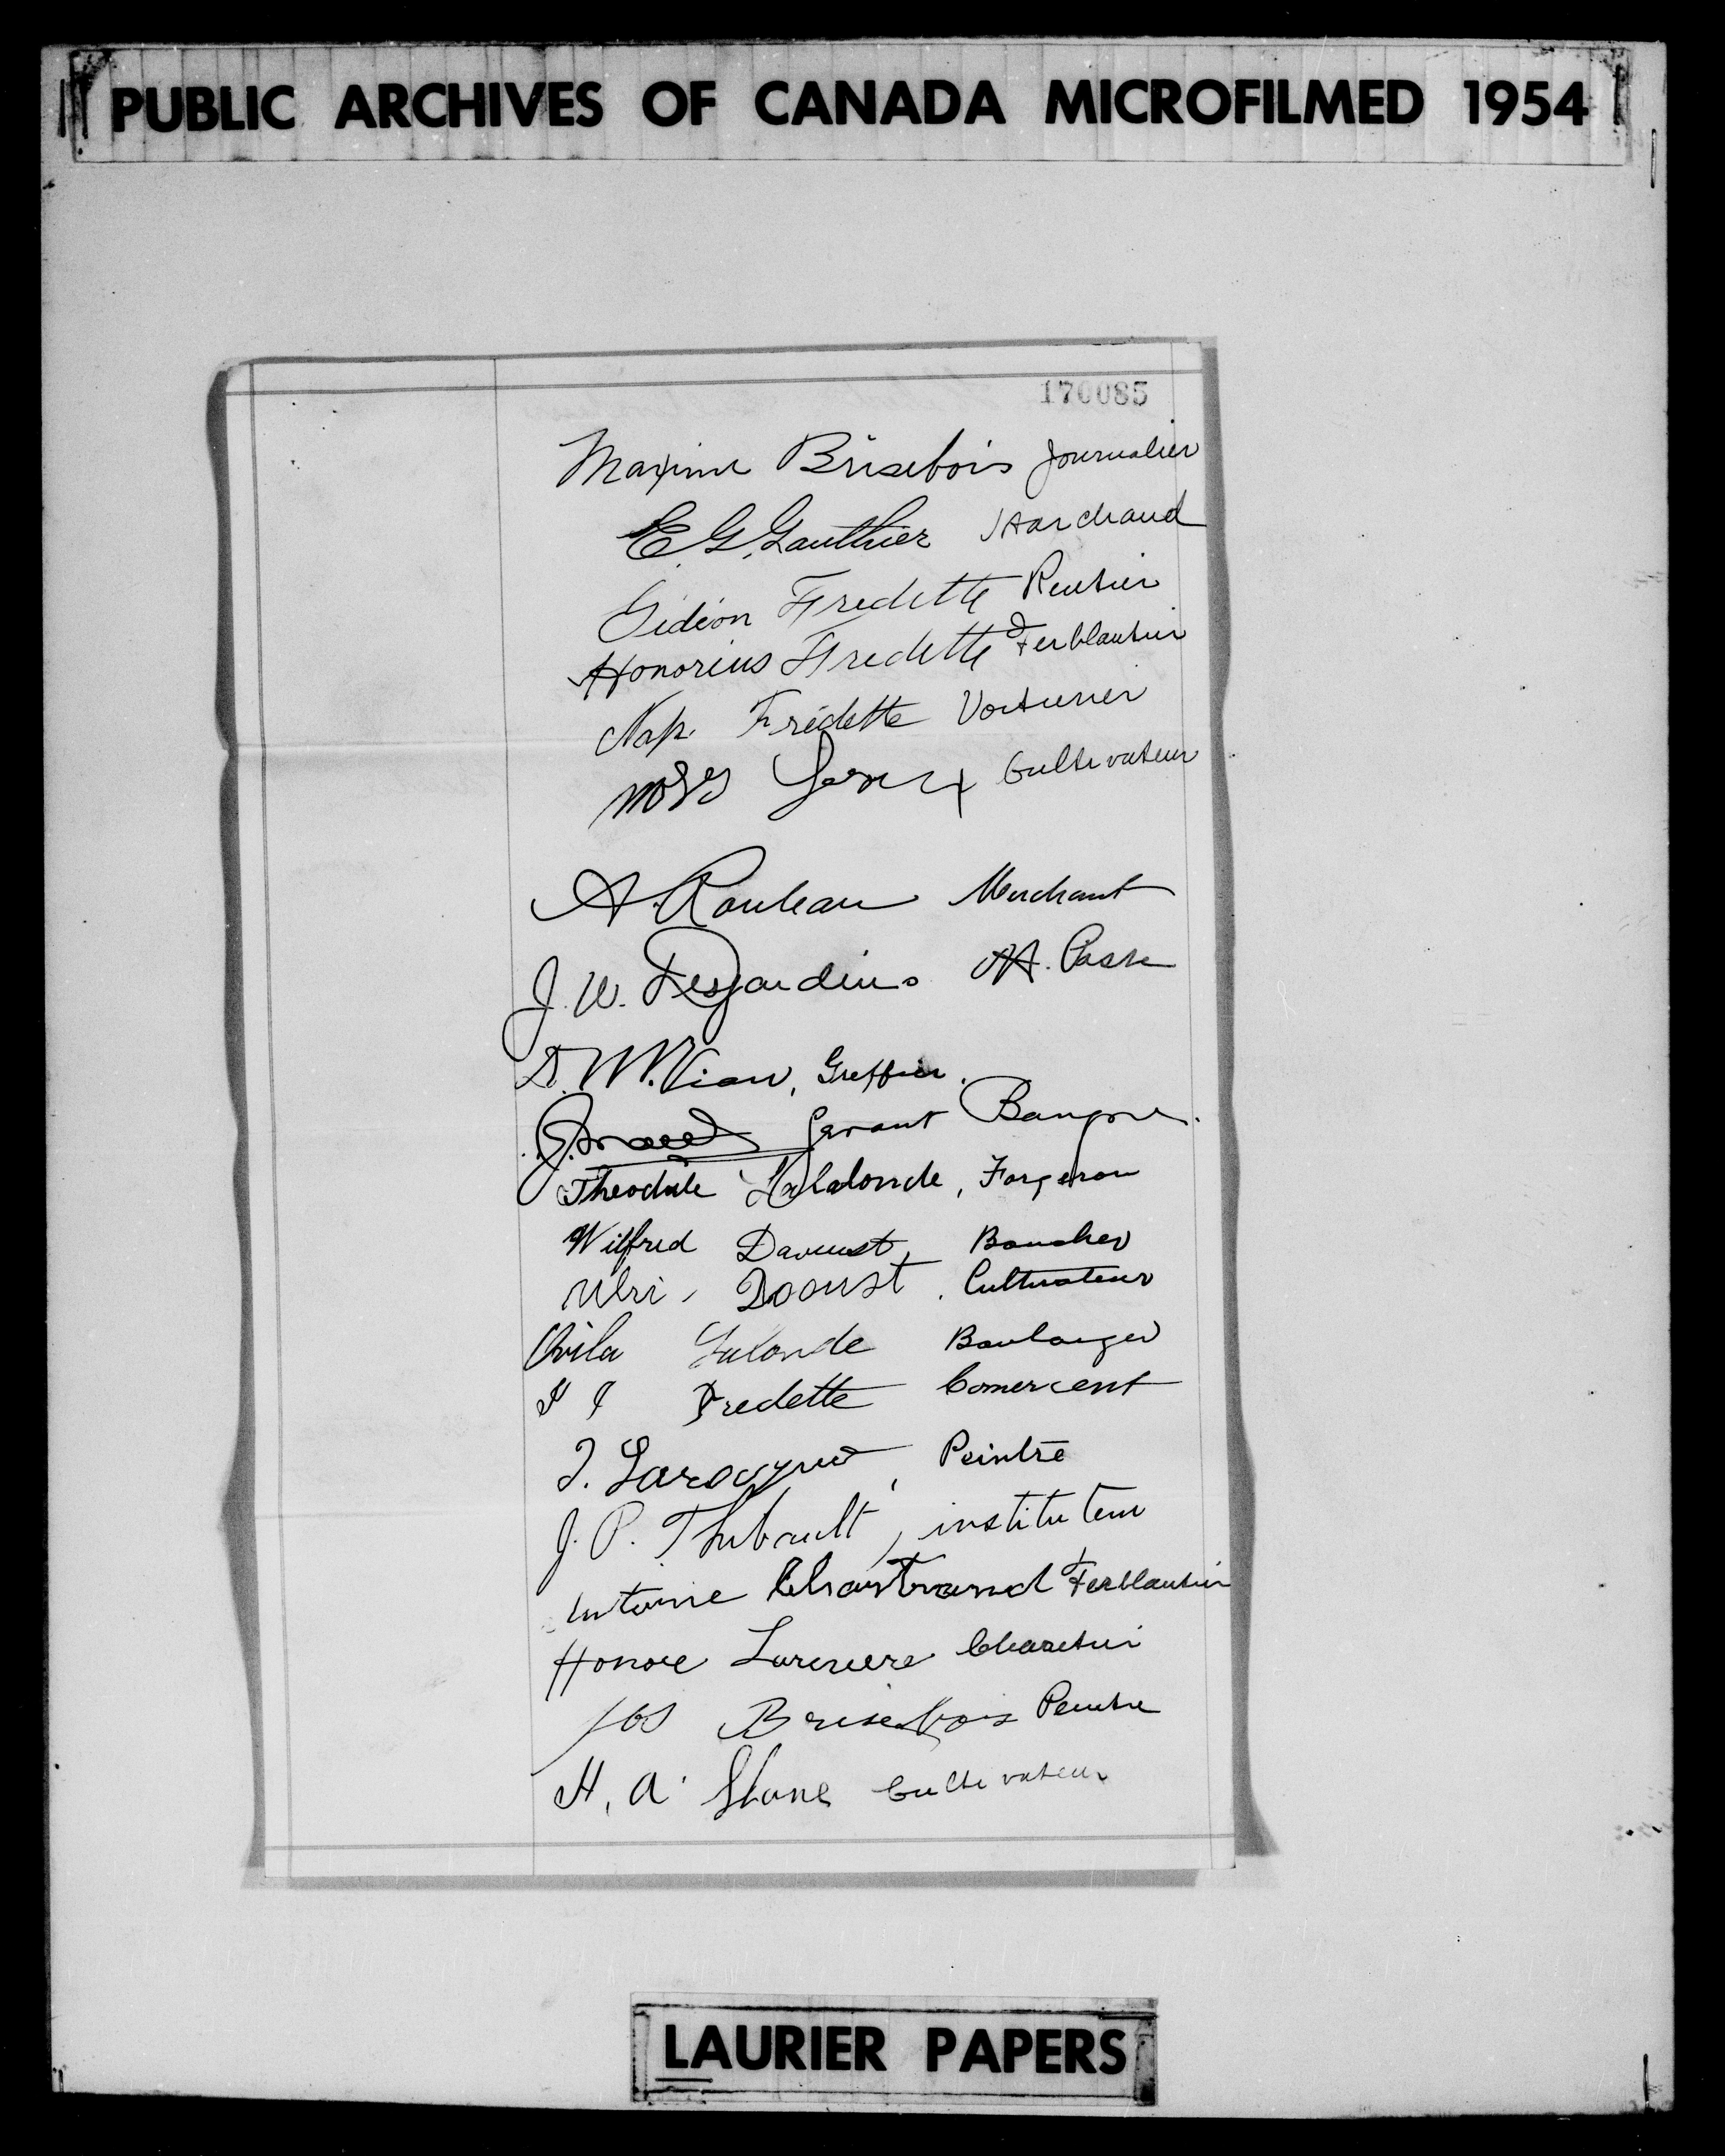 PUBLIC ARCHIVES OF CANADA MICROFILMED 1954
170085
Maxime Brisebois Journalier
E. G. Gauthier Marchand
Gideon Fredette Rentier
Honorius Fredette Ferblantier
Nap. Frédette Voiturier
Cultivateur
A. Rouleau Merchant
J. W. Desjardins M. Poste
A. W. Viau, Greffier.
Gerant Banque.
Theodule Lalonde, Forgeron
Wilfrid Davoust, Boucher
Ulri, Dooust. Cultivateur
Ovila Lalonde Boulanger
Fredette Comercent
J. Larocque, Peintre
J. P. Thibault, instituteur
Antoine Chartrand Ferblantier
Honore Lariviere Charetier
Jos Brisebois Peintre
H. A. Stone Cultivateur
LAURIER PAPERS